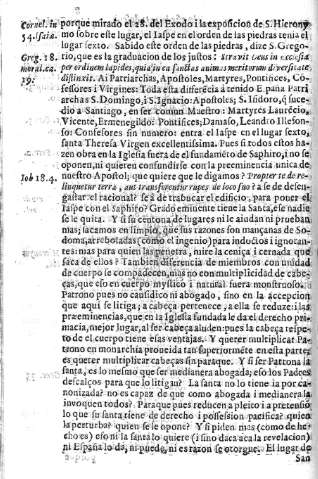 Cornel. in
54. Isaiæ.
Greg. 18.
moral. ca.
39.
Job 18.4.
porque mirado el 28. del Exodo i la exposicion de S. Hierony
mo sobre este lugar, el Iaspe en el orden de las piedras tenia el
lugar sexto. Sabido este orden de las piedras, dize S. Grego-
rio, que es la graduacion de los justos:
distinxit. Ai Patriarchas, Apostoles, Martyres, Pontifices, Co-
fessores i Virgines: Toda esta diferēcia a tenido España Patri
archas S. Domingo, i S. Ignacio: Apostoles; S. Isidoro, q̃ suce-
dio a Santiago, en ser comun Maestro: Martyres Laurecio,
Vicente, Ermenegildo: Pontifices; Damaso, Leandro Illefon-
so: Confesores sin numero entra el Iaspe en el lugar sexto,
santa Theresa Virgen excellentissima. Pues si todos estos ha-
zen obra en la Iglesia fuera de el fundamēto de Saphiro, i no se
oponen, ni quieren confundirse con la preeminencia unica de
nuestro Apostol; que quiere que le digamos? Propter te de re-
linquetur terra, aut transferentur rupes de loco suo? a se de desen-
gastar el racional? se à de trabucar el edificio, para poner el
Iaspe con el Saphiro? Grado eminente tiene la Santa, ese nadie
se le quita. Y si su centona de lugares ni le ajudan ni prueban
mas; iacamos en limpio, que sus razones son mançanas de So-
doma, arreboladas (como el ingenio) para indoctos i ignoran-
tes: mas para quien las penetra, mire la ceniça i cernada que
saca de ellos? Tanbien diferencia de miembros con unidad
de cuerpo se compadecen, mas no con multiplicidad de cabe-
ças, que eso en cuerpo mystico i natural fuera monstruoso. i
Patrono pues no causidico ni abogado, sino en la acepcion
que aqui se litiga; a cabeça pertenece, a ella se reduze: i las
preeminencias, que en la Iglesia fundada le da el derecho pri-
macia, mejor lugar, al ser cabeça aluden: pues la cabeça respe-
to de el cuerpo tiene esas ventajas. Y querer multiplicar Pa-
trono en monarchia proveida tan superiormēte en esta parte;
es querer multiplicar cabeças sin paraque. Y si ser Patrona la
santa, es lo mesmo que ser medianera abogada; eso los Padres
descalços para que lo litigan? La santa no lo tiene ia por ca-
nonizada? no es capaz de que como abogada i medianera la
invoquen todos? Paraque pues reducen a pleito i a pretensiō
lo que su santa tiene de derecho i possession pacifica? quien
la perturba? quien se le opone? Y si piden mas (como de he-
cho es) eso ni la santo lo quiere (i sino daca aca la revelacion)
ni España lo dà, ni puede, ni es razon se otorgue. El lugar de
San